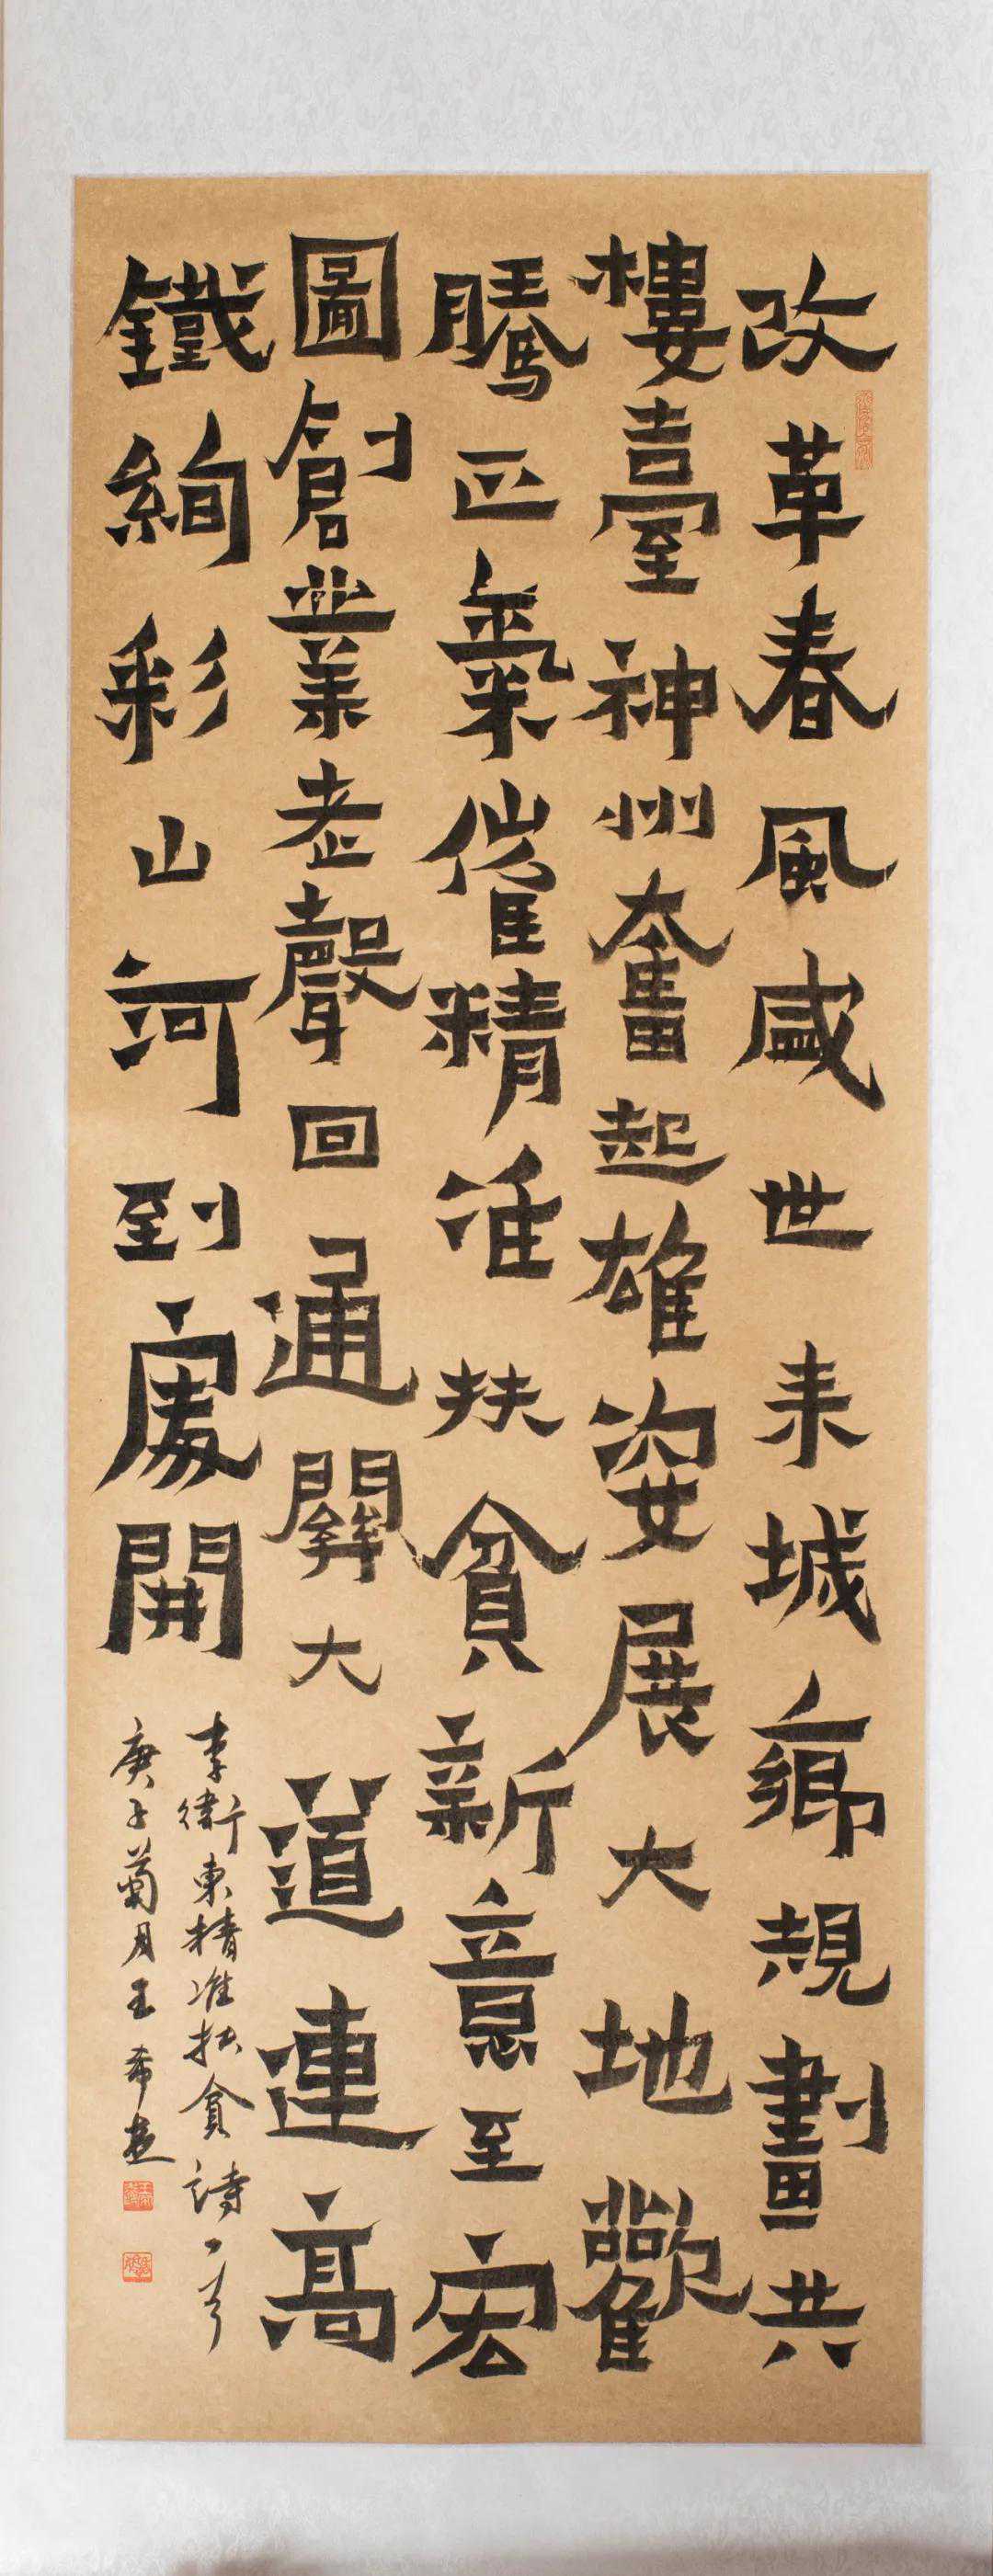 改革春風盛世来城鄉規劃共
樓臺神州奮起雄姿展大地歡
騰正氣催精准扶貧新意至宏
圖創業老聲回通關大道連高
鐵絢彩山河到處開
李衛東精准扶貧詩一首
庚子菊月王希